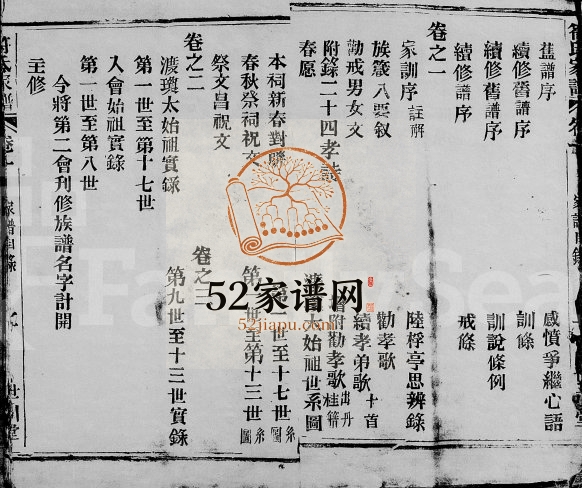 舊譜序
續修舊譜序
續修舊譜序
續修譜序
感憤爭繼心語
訓條
訓說條例
戒條
卷之一
家訓序 註解
族箴八要叙
勸戒男女文
附錄二十四孝詩
春愿
陸桴亭思辨錄
勸孝歌
續孝弟歌 十首
附勸孝歌
太始祖世系圖
本祠新春對聯
春秋祭祠祝文
祭文昌祝文
世至十七世 系圖
世至第十三世 系圖
卷之二
渡瓊太始祖實錄
第一世至第十七世
入會始祖實錄
第一世至第八世
卷之三
第九世至十三世實錄
今將第二會刊修族譜名字計開
主修
家譜目錄
52家谱网
52jiapu.com